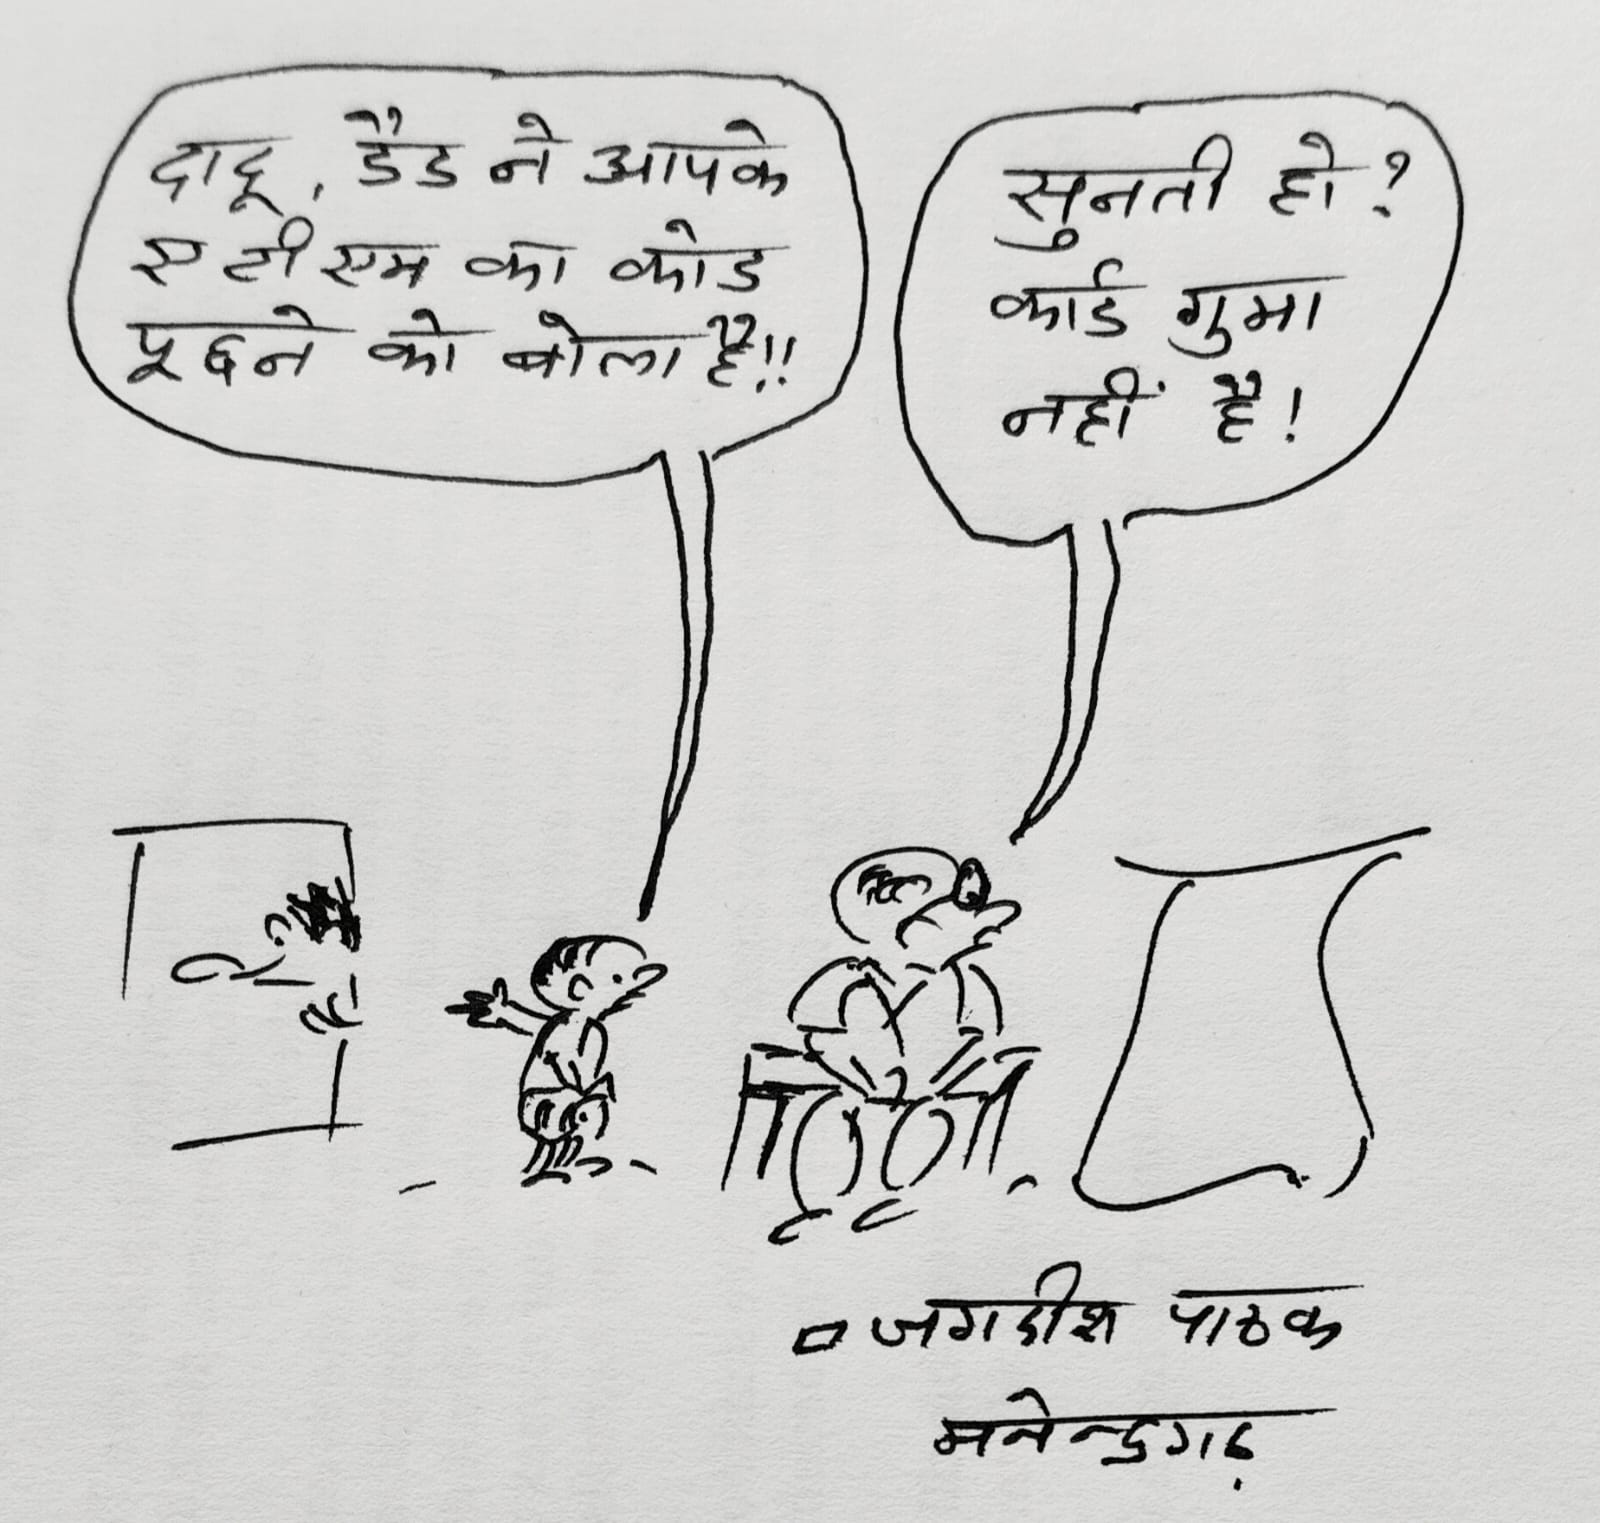 दादू, डैड ने आपके
ए टी एम का कोड
पूछने को बोला है!!
सुनती हो?
कार्ड गुमा
नहीं है!
जगदीश पाठक
मनेन्द्रगढ़